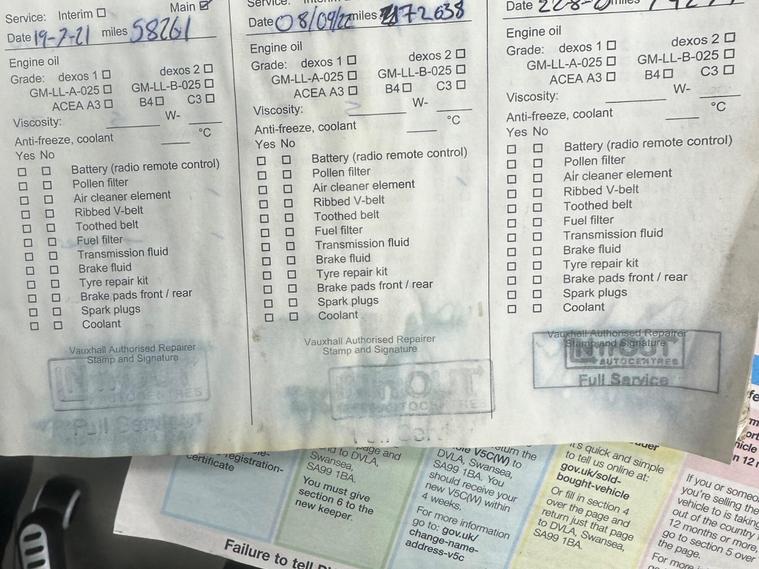 Service: Interim ☐ Main ☑
Date 19-7-21 miles 58261
Engine oil
Grade: dexos 1 ☐ dexos 2 ☐
GM-LL-A-025 ☐ GM-LL-B-025 ☐
ACEA A3 ☐ B4 ☐ C3 ☐
Viscosity: W-
Anti-freeze, coolant °C
Yes No
☐ ☐ Battery (radio remote control)
☐ ☐ Pollen filter
☐ ☐ Air cleaner element
☐ ☐ Ribbed V-belt
☐ ☐ Toothed belt
☐ ☐ Fuel filter
☐ ☐ Transmission fluid
☐ ☐ Brake fluid
☐ ☐ Tyre repair kit
☐ ☐ Brake pads front / rear
☐ ☐ Spark plugs
☐ ☐ Coolant
Vauxhall Authorised Repairer
Stamp and Signature
AUTOCENTRES
Full Service
Service:
Date 08/09/22 miles 72638
Engine oil
Grade: dexos 1 ☐ dexos 2 ☐
GM-LL-A-025 ☐ GM-LL-B-025 ☐
ACEA A3 ☐ B4 ☐ C3 ☐
Viscosity: W-
Anti-freeze, coolant °C
Yes No
☐ ☐ Battery (radio remote control)
☐ ☐ Pollen filter
☐ ☐ Air cleaner element
☐ ☐ Ribbed V-belt
☐ ☐ Toothed belt
☐ ☐ Fuel filter
☐ ☐ Transmission fluid
☐ ☐ Brake fluid
☐ ☐ Tyre repair kit
☐ ☐ Brake pads front / rear
☐ ☐ Spark plugs
☐ ☐ Coolant
Vauxhall Authorised Repairer
Stamp and Signature
AUTOCENTRE
Date miles
Engine oil
Grade: dexos 1 ☐ dexos 2 ☐
GM-LL-A-025 ☐ GM-LL-B-025 ☐
ACEA A3 ☐ B4 ☐ C3 ☐
Viscosity: W-
Anti-freeze, coolant °C
Yes No
☐ ☐ Battery (radio remote control)
☐ ☐ Pollen filter
☐ ☐ Air cleaner element
☐ ☐ Ribbed V-belt
☐ ☐ Toothed belt
☐ ☐ Fuel filter
☐ ☐ Transmission fluid
☐ ☐ Brake fluid
☐ ☐ Tyre repair kit
☐ ☐ Brake pads front / rear
☐ ☐ Spark plugs
☐ ☐ Coolant
Vauxhall Authorised Repairer
Stamp and Signature
AUTOCENTRES
Full Service
-registration-
certificate
page and
to DVLA,
Swansea,
SA99 1BA.
You must give
section 6 to the
new keeper.
return the
V5C(W) to
DVLA, Swansea,
SA99 1BA. You
should receive your
new V5C(W) within
4 weeks.
For more information
go to: gov.uk/
change-name-
address-v5c
it's quick and simple
to tell us online at:
gov.uk/sold-
bought-vehicle
Or fill in section 4
over the page and
return just that page
to DVLA, Swansea,
SA99 1BA.
If you or
you're selling the
vehicle to is taking
out of the country
12 months or more,
go to section 5 over
the page.
For more
Failure to tell